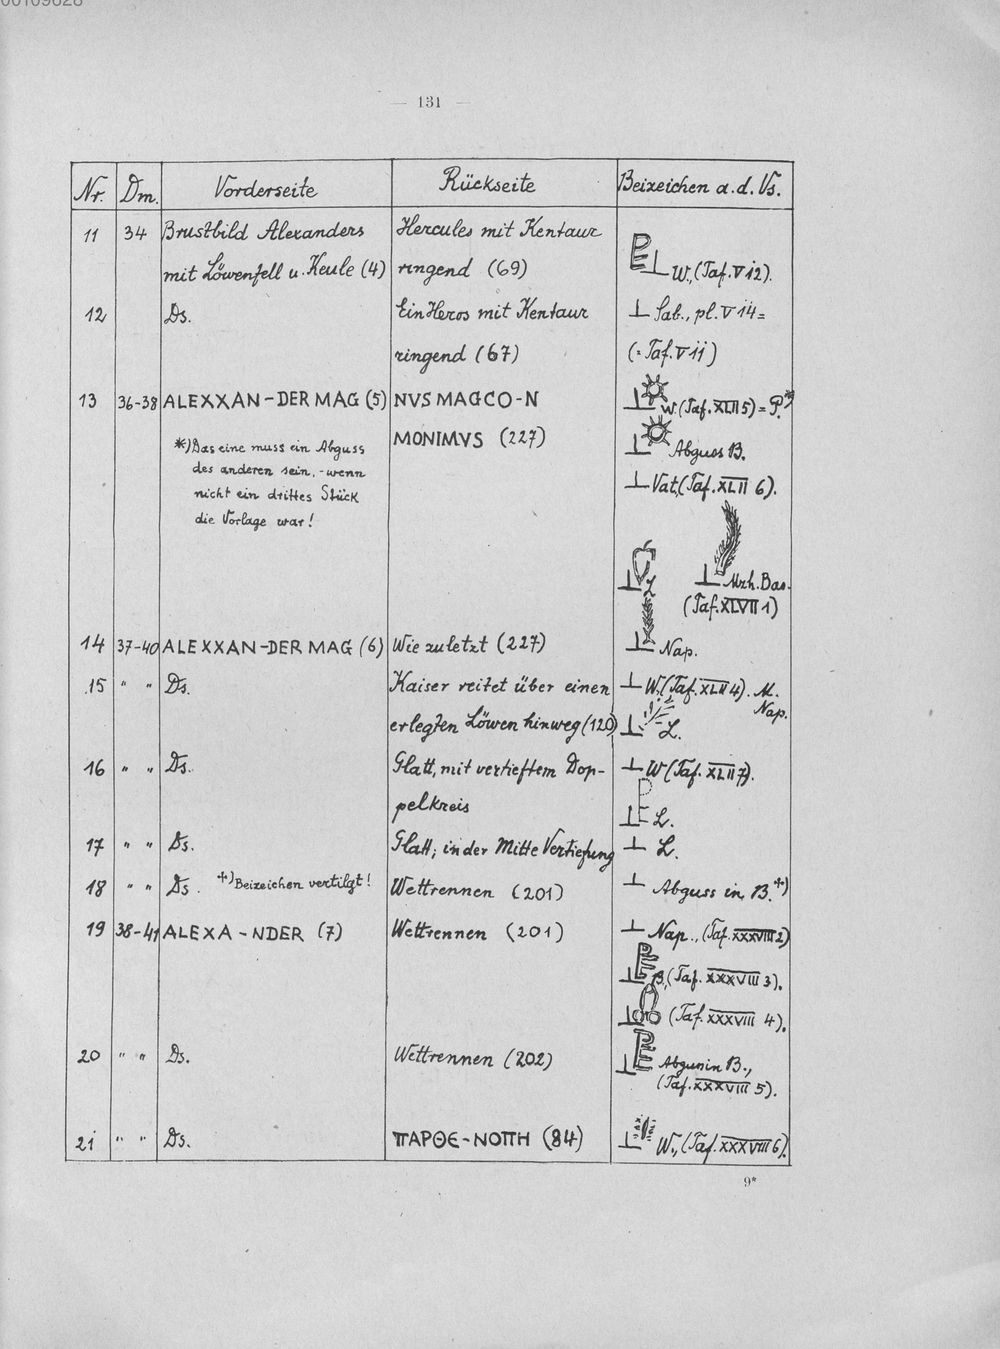 00109628
— 131 —
Nr. Dm. Vorderseite Rückseite Beizeichen a.d.Vs.
11 34 Brustbild Alexanders Hercules mit Kentaur
mit Löwenfell u. Keule (4) ringend (69) W., (Taf. V 12).
12 Ds. Ein Heros mit Kentaur Sab., pl. V 14 =
ringend (67) (= Taf. V 11)
13 36-38 ALEXXAN-DER MAG (5) NVS MAGCO-N W. (Taf. XLII 5) = P. *)
MONIMVS (227) Abguss B.
*) Das eine muss ein Abguss
des anderen sein, - wenn Vat., (Taf. XLII 6).
nicht ein drittes Stück
die Vorlage war!
L Mzh. Bas.
(Taf. XLVII 1)
14 37-40 ALEXXAN-DER MAG (6) Wie zuletzt (227) Nap.
15 " " Ds. Kaiser reitet über einen W. (Taf. XLII 4). M.
Nap.
erlegten Löwen hinweg (120) L.
16 " " Ds. Glatt, mit vertieftem Dop- W (Taf. XLII 7).
pelkreis L.
17 " " Ds. Glatt; in der Mitte Vertiefung L.
18 " " Ds. +) Beizeichen vertilgt! Wettrennen (201) Abguss in B. +)
19 38-41 ALEXA-NDER (7) Wettrennen (201) Nap., (Taf. XXXVIII 2)
B., (Taf. XXXVIII 3).
(Taf. XXXVIII 4).
20 " " Ds. Wettrennen (202) Abguss in B.,
(Taf. XXXVIII 5).
21 " " Ds. ΠΑΡΘΕ-ΝΟΠΗ (84) W., (Taf. XXXVIII 6).
9*